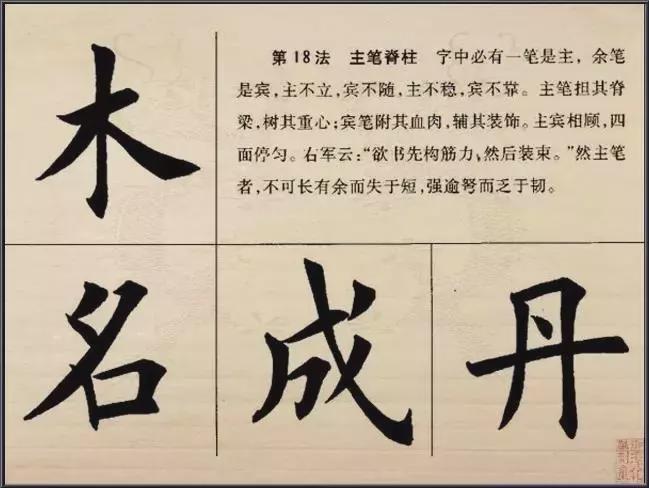 木
第18法 主笔脊柱 字中必有一笔是主，余笔
是宾，主不立，宾不随，主不稳，宾不靠。主笔担其脊
梁，树其重心；宾笔附其血肉，辅其装饰。主宾相顾，四
面停匀。右军云：“欲书先构筋力，然后装束。”然主笔
者，不可长有余而失于短，强逾弩而乏于韧。
名 成 丹